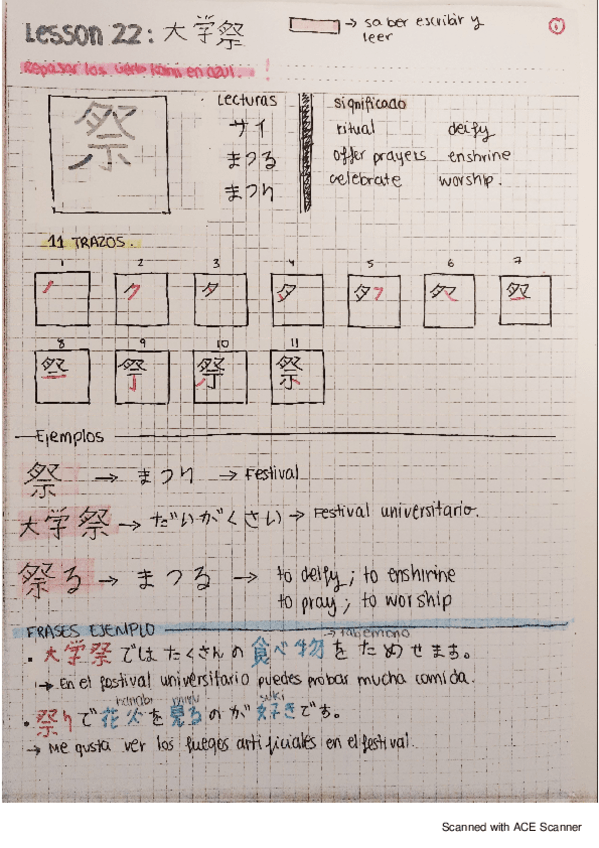 Lesson 22: 大学祭
→ saber escribir y
leer
Repasar los Kanji en azul... !
祭
Lecturas
サイ
まつる
まつり
significado
ritual deify
offer prayers enshrine
celebrate worship.
11 TRAZOS.
1 2 3 4 5 6 7
8 9 10 11
Ejemplos
祭 → まつり → Festival
大学祭 → だいがくさい → Festival universitario.
祭る → まつる → to deify; to enshirine
to pray; to worship
FRASES EJEMPLO
→ tabemono
• 大学祭ではたくさんの食べ物をためせます。
↳ En el festival universitario puedes probar mucha comida.
hanabi miru suki
• 祭りで花火を見るのが好きです。
→ Me gusta ver los fuegos artificiales en el festival.
Scanned with ACE Scanner